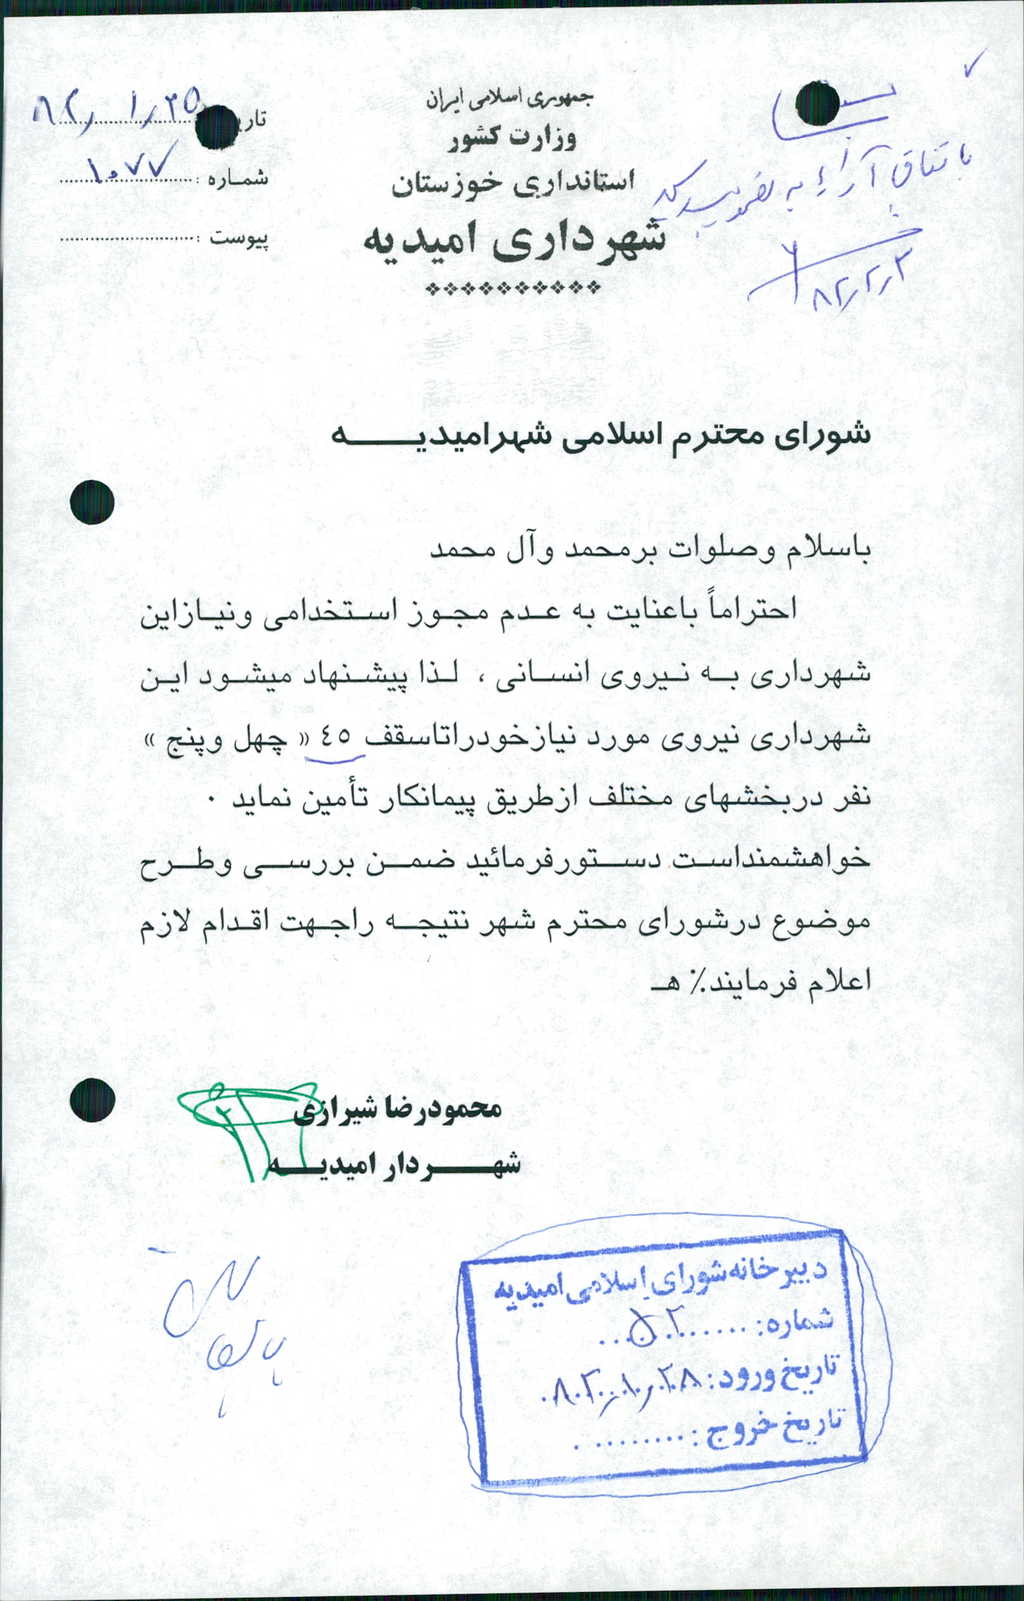 جمهوری اسلامی ایران
وزارت کشور
استانداری خوزستان
شهرداری امیدیه
۸۲٫۱٫۲۵
شماره : ۱۰۷۷
پیوست :
باتفاق آراء به تصویب رسید
۸۲٫۲٫۳
شورای محترم اسلامی شهرامیدیه
باسلام وصلوات برمحمد وآل محمد
احتراماً باعنایت به عدم مجوز استخدامی ونیازاین
شهرداری به نیروی انسانی ، لذا پیشنهاد میشود این
شهرداری نیروی مورد نیازخودراتاسقف ٤٥ « چهل وپنج »
نفر دربخشهای مختلف ازطریق پیمانکار تأمین نماید ٠
خواهشمنداست دستورفرمائید ضمن بررسی وطرح
موضوع درشورای محترم شهر نتیجه راجهت اقدام لازم
اعلام فرمایند٪ هـ
محمودرضا شیرازی
شهردار امیدیه
دبیرخانه شورای اسلامی امیدیه
شماره:
تاریخ ورود: ۸۲٫۱٫۲۸
تاریخ خروج: